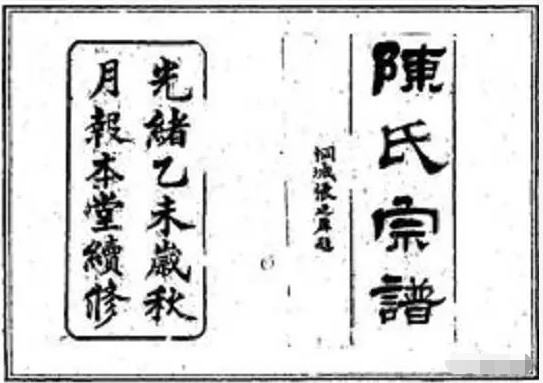 陳氏宗譜
桐城張之屏題
光緒乙未歲秋
月報本堂續修